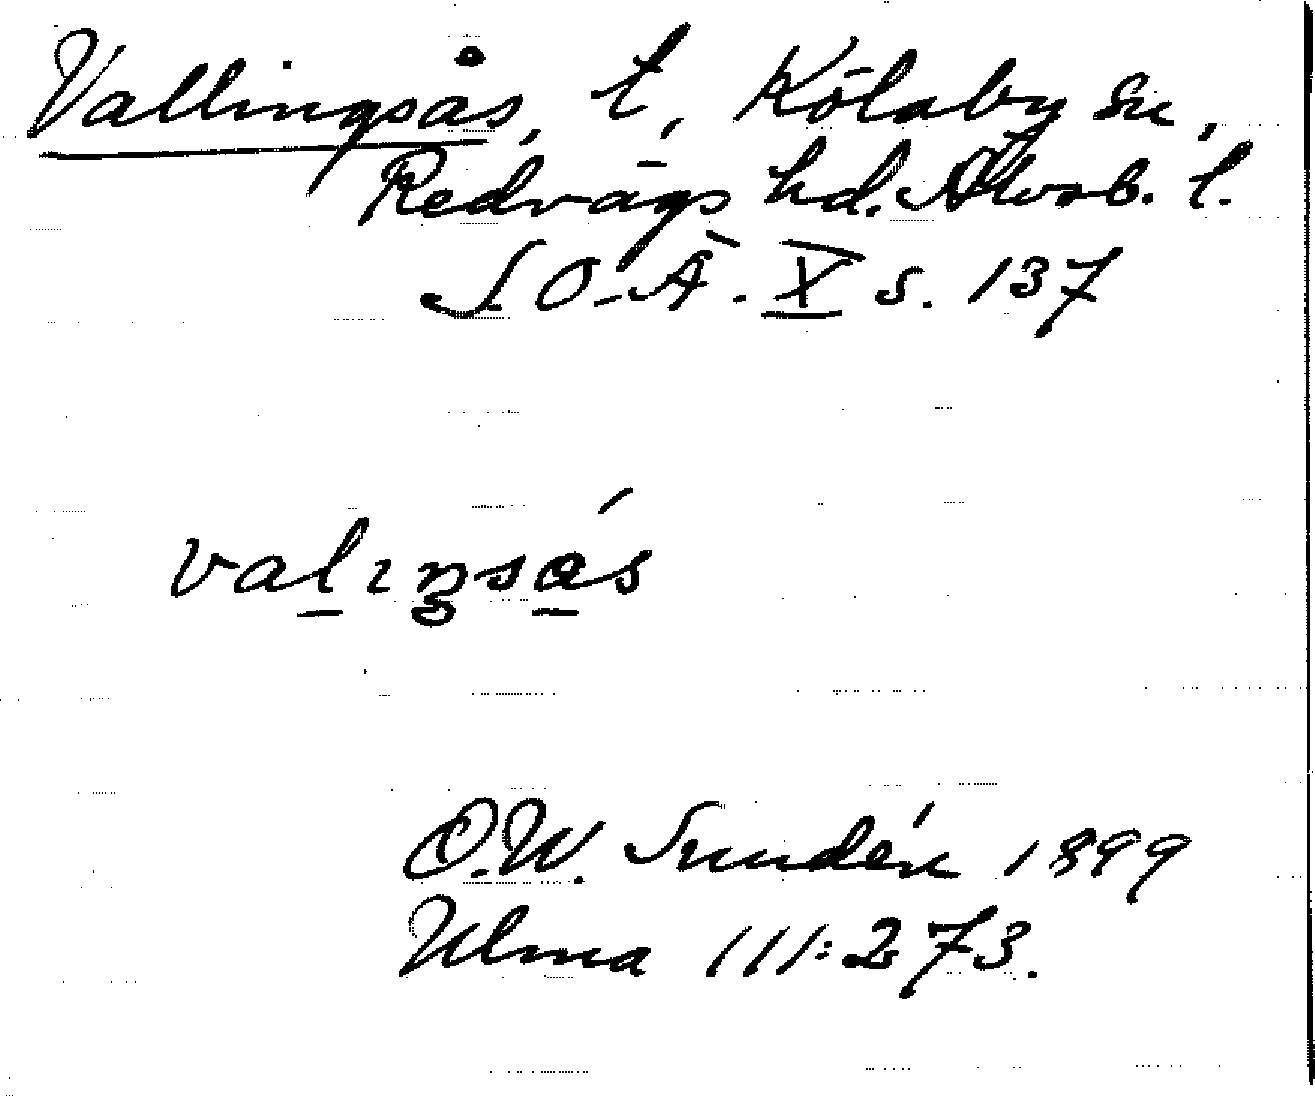 Vallingsås, t, Kölaby sn,
Redvägs hd. Älvsb. l.
S.O.Ä. X s. 137
valıŋsás
O.W. Sundén 1899
Ulma 111:273.